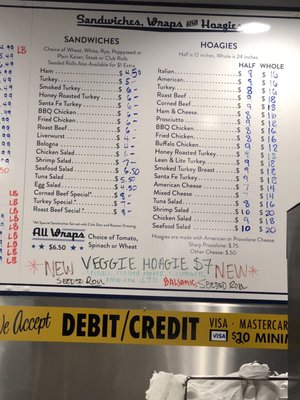 Sandwiches, Wraps and Hoagies
SANDWICHES
Choice of Wheat, White, Rye, Poppyseed or
Plain Kaiser, Steak or Club Rolls
Seeded Rolls Also Available for $1 Extra
Ham $4.50
Turkey $5-
Smoked Turkey $6-
Honey Roasted Turkey $6-
Santa Fe Turkey $6-
BBQ Chicken $6-
Fried Chicken $6-
Roast Beef $6-
Liverwurst $4-
Bologna $4-
Chicken Salad $6-
Shrimp Salad $7-
Seafood Salad $6.50
Tuna Salad $5.50
Egg Salad $4.50
Corned Beef Special* $8-
Turkey Special* $7-
Roast Beef Special* $8-
*All Special Sandwiches Served with Cole Slaw and Russian Dressing
All Wraps
$6.50
Choice of Tomato,
Spinach or Wheat
HOAGIES
Half is 12 inches, Whole is 24 inches
HALF WHOLE
Italian $8 $16
American $8 $16
Turkey $8 $16
Roast Beef $9 $18
Corned Beef $9 $18
Ham & Cheese $8 $16
Prosciutto $9 $18
BBQ Chicken $8 $16
Fried Chicken $8 $16
Buffalo Chicken $9 $18
Honey Roasted Turkey $9 $18
Lean & Lite Turkey $9 $18
Smoked Turkey Breast $9 $18
Santa Fe Turkey $9 $18
American Cheese $7 $14
Mixed Cheese $7 $14
Tuna Salad $8 $16
Shrimp Salad $10 $20
Chicken Salad $9 $18
Seafood Salad $10 $20
Hoagies are made with American or Provolone Cheese
Sharp Provolone $.75
Other Cheese $.50
NEW VEGGIE HOAGIE $7 NEW
SEEDED ROLL
BALSAMIC SEEDED ROLL
We Accept DEBIT/CREDIT VISA • MASTERCAR
VISA $10 MINI
LB
LB
LB
LB
LB
LB
LB
LB